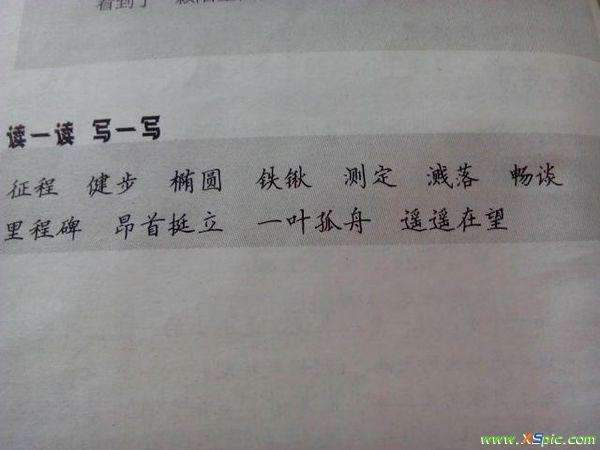 读一读 写一写
征程 健步 椭圆 铁锹 测定 溅落 畅谈
里程碑 昂首挺立 一叶孤舟 遥遥在望
www.XSpic.com